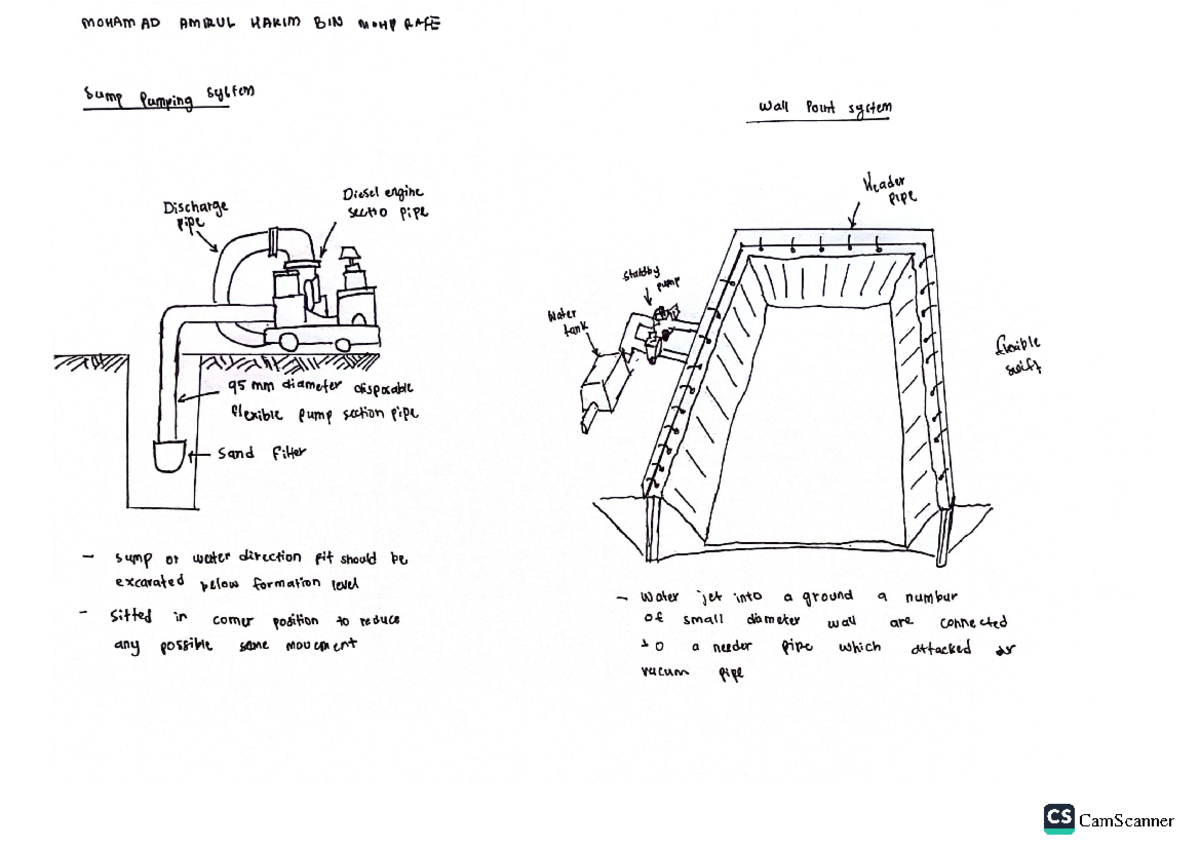 MOHAMAD AMIRUL HAKIM BIN MOHD RAFE
Sump Pumping System
Discharge
pipe
Diesel engine
sectio pipe
95 mm diameter disposable
flexible pump section pipe
Sand Filter
- sump or water direction pit should be
excarated below formation level
- Sitted in corner position to reduce
any possible same movement
Wall Point system
Header
pipe
Standby
pump
Water
tank
flexible
- Water jet into a ground a number
of small diameter wall are connected
to a neader pipe which attacked
vacum pipe
CS CamScanner